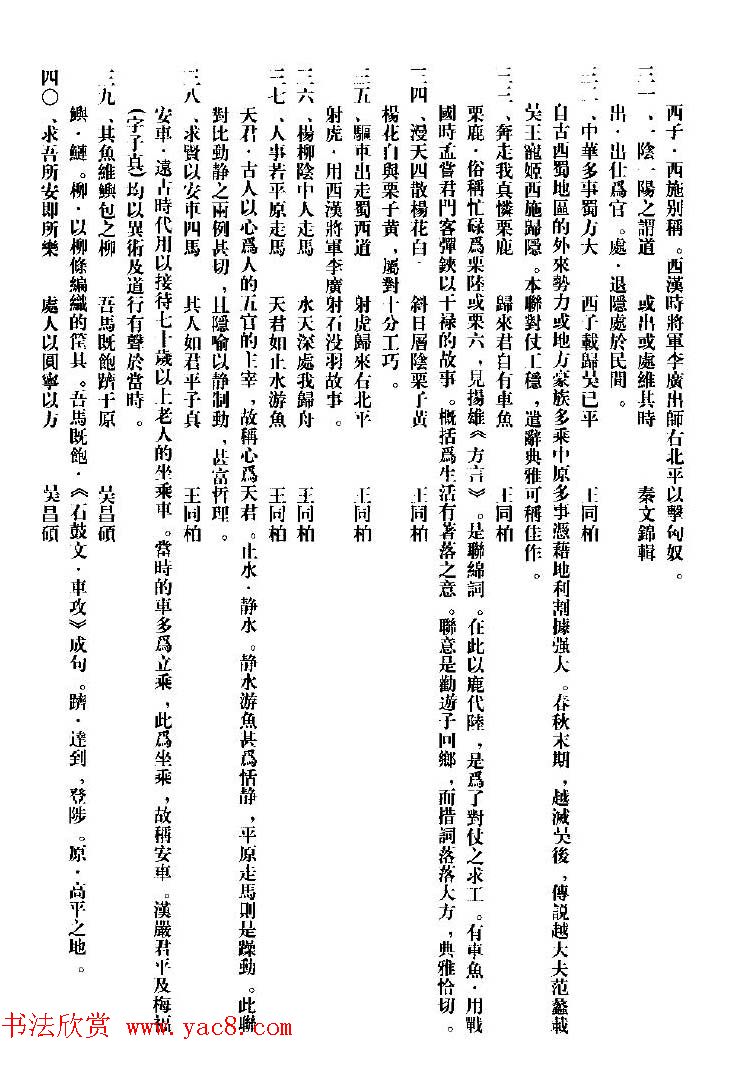 西子·西施別稱。西漢時將軍李廣出師右北平以擊匈奴。
三一、一陰一陽之謂道　或出或處維其時　秦文錦輯
出·出仕爲官。處·退隱處於民間。
三二、中華多事蜀方大　西子載歸吳已平　王同柏
自古西蜀地區的外來勢力或地方豪族多乘中原多事憑藉地利割據强大。春秋末期，越滅吳後，傳説越大夫范蠡載
吳王寵姬西施歸隱。本聯對仗工穩，遣辭典雅可稱佳作。
三三、奔走我真憐栗鹿　歸來君自有車魚　王同柏
栗鹿·俗稱忙碌爲栗陸或栗六，見揚雄《方言》。是聯綿詞。在此以鹿代陸，是爲了對仗之求工。有車魚·用戰
國時孟嘗君門客彈鋏以干禄的故事。概括爲生活有著落之意。聯意是勸遊子回鄉，而措詞落落大方，典雅恰切。
三四、漫天四散楊花白　斜日層陰栗子黄　王同柏
楊花白與栗子黄，屬對十分工巧。
三五、驅車出走蜀西道　射虎歸來右北平　王同柏
射虎·用西漢將軍李廣射石没羽故事。
三六、楊柳陰中人走馬　水天深處我歸舟　王同柏
三七、人事若平原走馬　天君如止水游魚　王同柏
天君·古人以心爲人的五官的主宰，故稱心爲天君。止水·静水。静水游魚甚爲恬静，平原走馬則是躁動。此聯
對比動静之兩例甚切，且隱喻以静制動，甚富哲理。
三八、求賢以安車四馬　其人如君平子真　王同柏
安車·遠古時代用以接待七十歲以上老人的坐乘車。當時的車多爲立乘，此爲坐乘，故稱安車。漢嚴君平及梅福
(字子真)均以異術及道行有聲於當時。
三九、其魚維鱮包之柳　吾馬既飽躋于原　吳昌碩
鱮·鰱。柳·以柳條編織的筐具。吾馬既飽·《石鼓文·車攻》成句。躋·達到，登陟。原·高平之地。
四〇、求吾所安即所樂　處人以圓寧以方　吳昌碩
书法欣赏 www.yac8.com